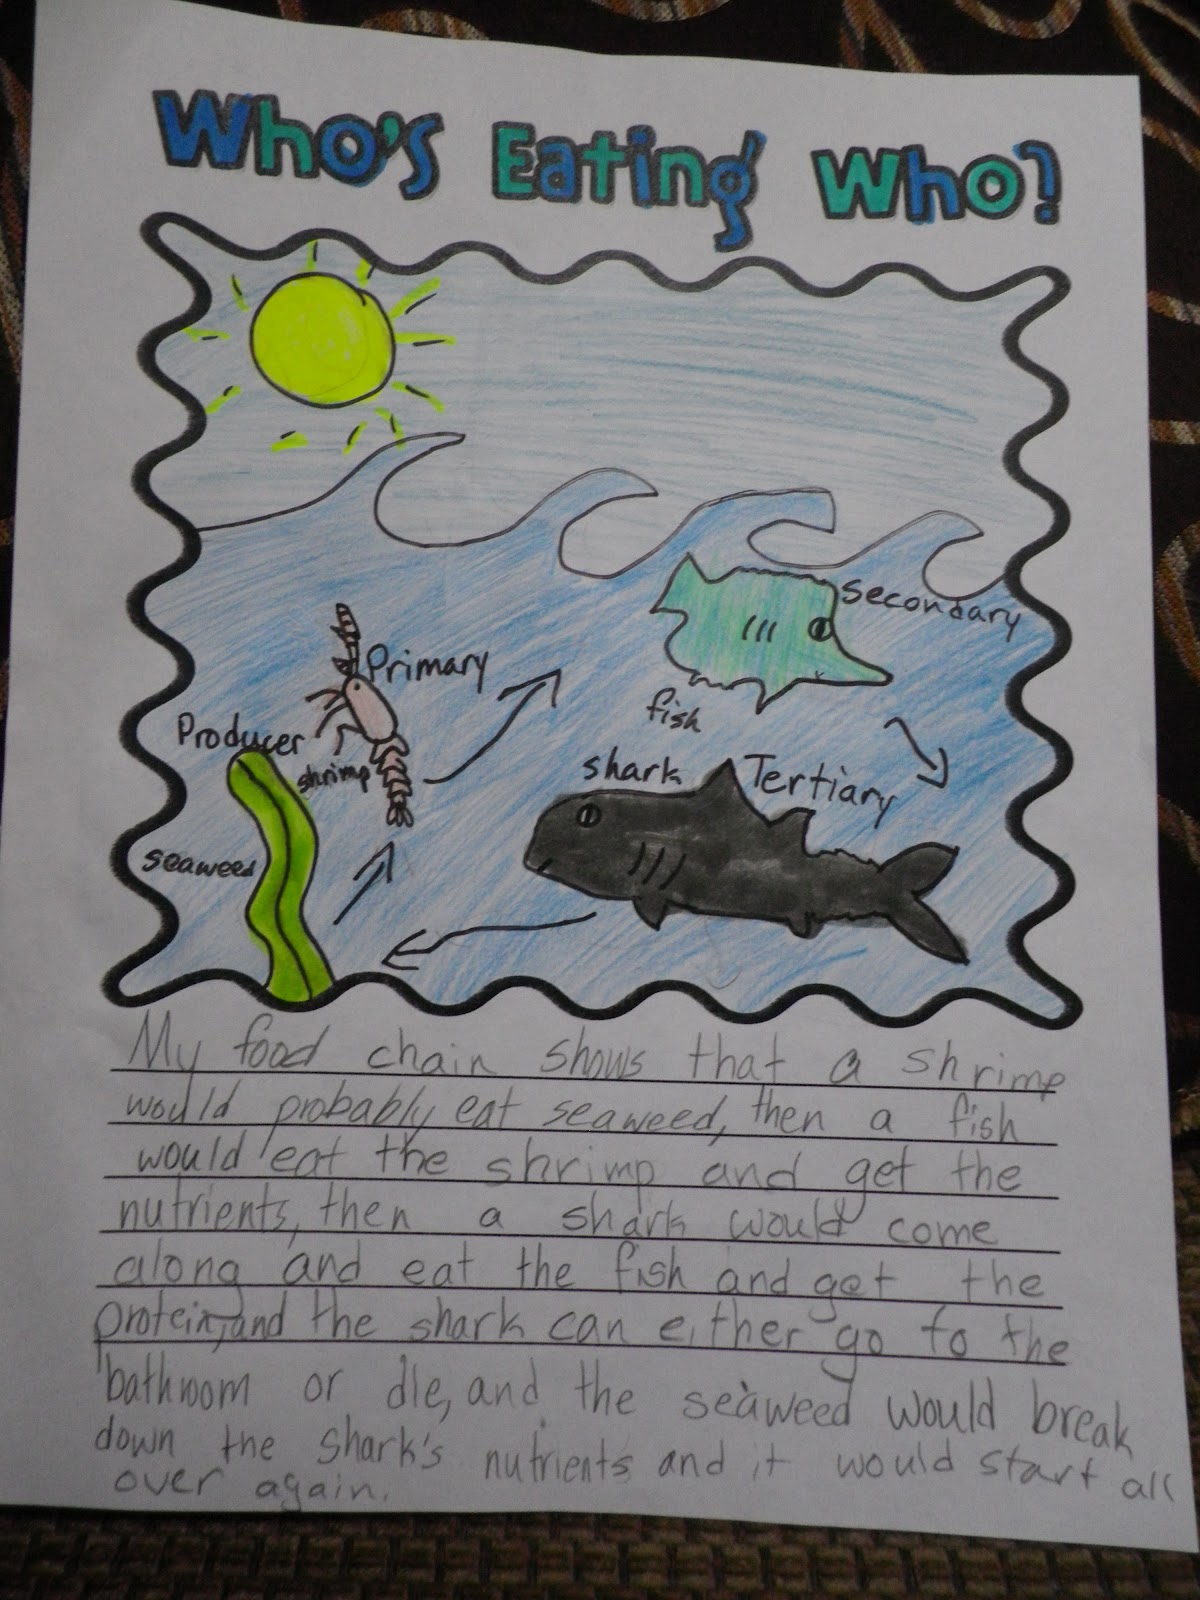 Who's Eating Who?
Secondary
Primary
fish
Producer
shrimp
shark
Tertiary
seaweed
My food chain shows that a shrimp
would probably eat seaweed, then a fish
would eat the shrimp and get the
nutrients, then a shark would come
along and eat the fish and get the
protein, and the shark can either go to the
bathroom or die, and the seaweed would break
down the shark's nutrients and it would start all
over again.